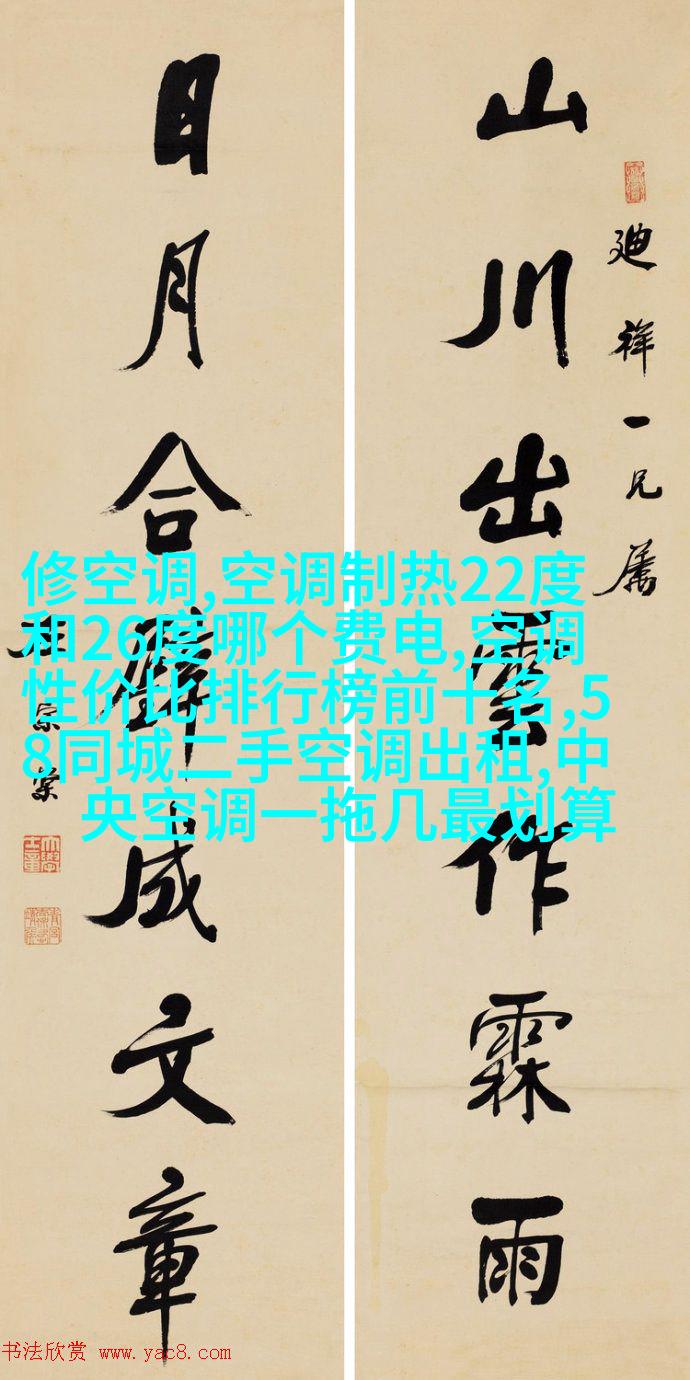 廸祥一兄屬
山川出雲作霖雨
日月合璧成文章
左宗棠
修空调,空调制热22度
和26度哪个费电,空调
性价比排行榜前十名,5
8同城二手空调出租,中
央空调一拖几最划算
书法欣赏 www.yac8.com